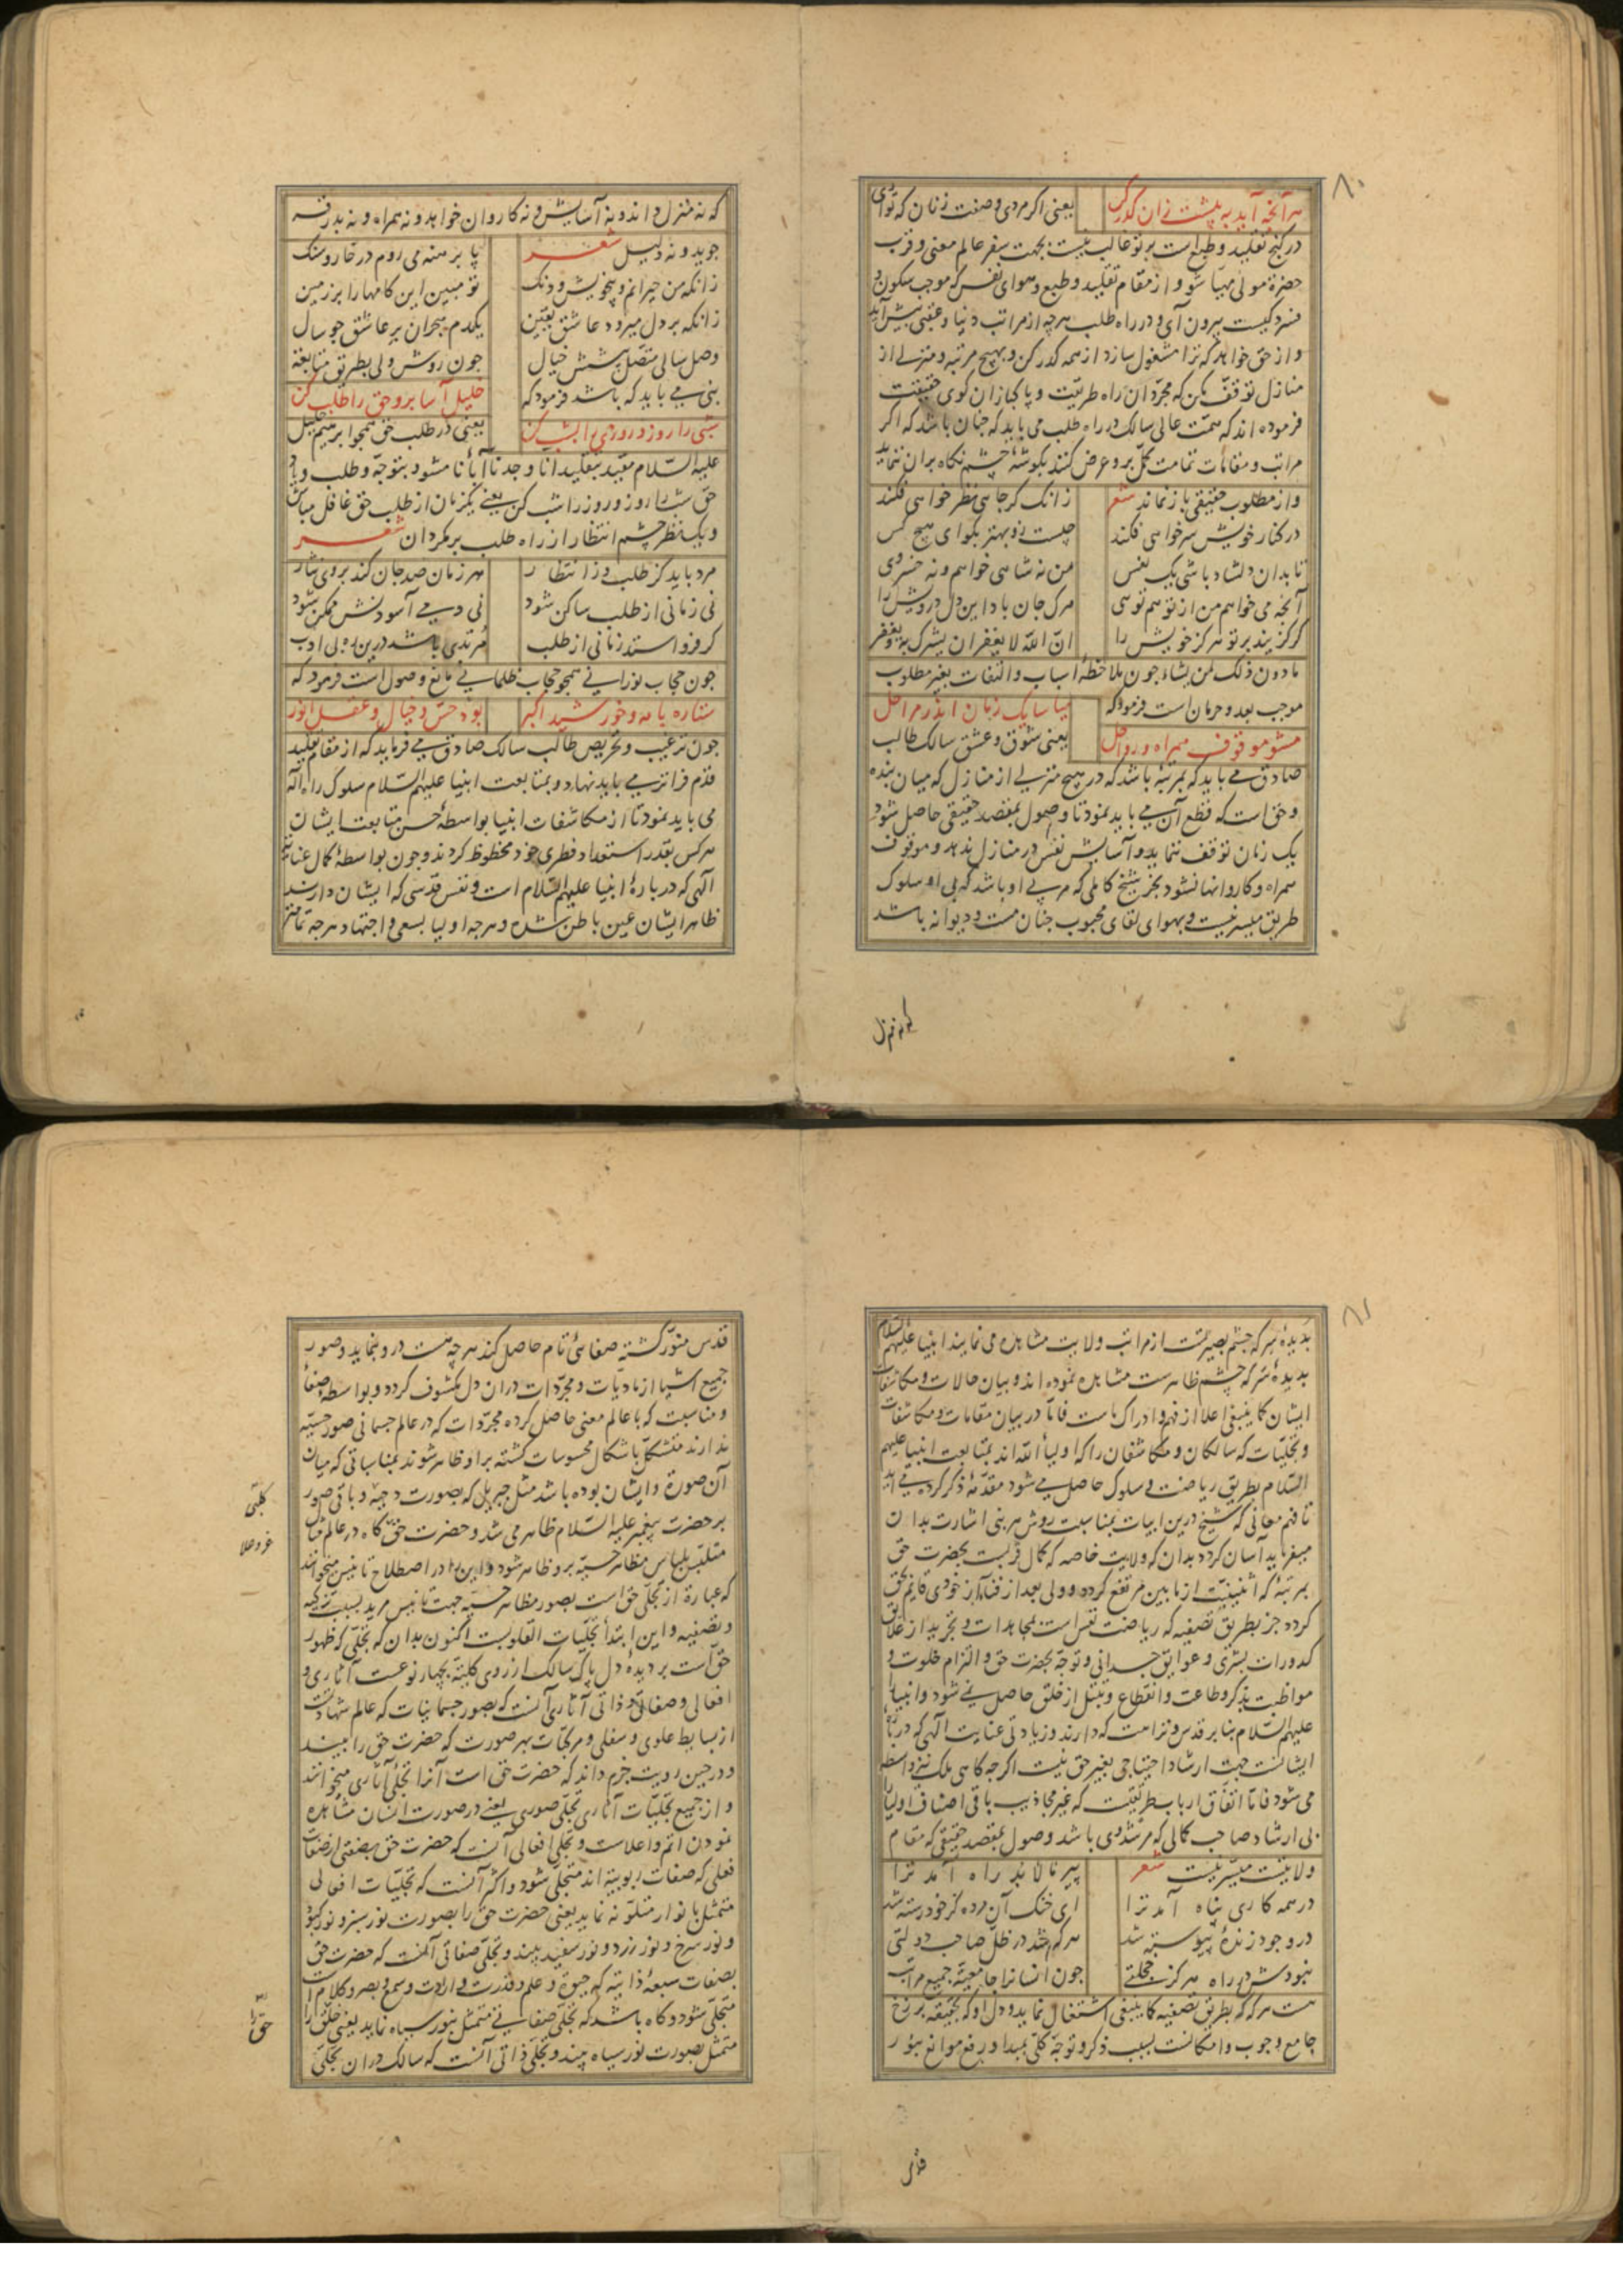 ۸۰
هر آنچه آید به پیشت زان گذر کن یعنی اگر مردی و صفت زنان که توای
در کنج تقلید و طبع است بر تو غالب نیست بجهت سفر عالم معنی و قرب
حضرة مولی مهیا شو و از مقام تقلید و طبع و هوای نفس که موجب سکون و
فسردگیست بیرون آی و در راه طلب هرچه از مراتب دنیا و عقبی پیش آید
و از حق خواهد که ترا مشغول سازد از همه گذر کن و بهیچ مرتبه و منزلی از
منازل توقف مکن که مجردان راه طریقت و پاکبازان کوی حقیقت
فرموده اند که همت عالی سالک در راه طلب می باید که چنان باشد که اگر
مراتب و مقامات تمامت کمل برو عرض کنند بگوشهٔ چشم نگاه بران ننماید
و از مطلوب حقیقی باز نماند شعر زانک گر جایی نظر خواهی فکند
در کنار خویش سر خواهی فکند چیست زو بهتر بگو ای هیچ کس
تا بدان دلشاد باشی یک نفس من نه شاهی خواهم و نه خسروی
آنچه می خواهم من از تو هم توئی مرک جان باد این دل درویش را
گر گزیند بر تو هرگز خویش را انّ اللّه لا یغفر ان یشرک به و یغفر
مادون ذلک لمن یشاء چون ملاحظهٔ اسباب و التفات بغیر مطلوب
موجب بعد و حرمان است فرمود که میاسا یک زمان اندر مراحل
مشو موقوف همراه و رواحل یعنی شوق و عشق سالک طالب
صادق می باید که بمرتبهٔ باشد که در هیچ منزلی از منازل که میان بنده
و حق است که قطع آن می باید نمود تا وصول بمقصد حقیقی حاصل شود
یک زمان توقف ننماید و آسایش نفس در منازل ندهد و موقوف
همراه و کاروانها نشود بجز شیخ کاملی که مربی او باشد که بی او سلوک
طریق میسر نیست و بهوای لقای محبوب چنان مست و دیوانه باشد
که نه منزل
که نه منزل داند و نه آسایش و نه کاروان خواهد و نه همراه و نه بدرقه
جوید و نه دلیل شعر پا برهنه می روم در خار و سنک
زانکه من حیرانم و بیخویش و دنک تو مبین این کامها را بر زمین
زانکه بر دل میرود عاشق یقین یکدم هجران بر عاشق چو سال
وصل سالی متصل پیشش خیال چون روش ولی بطریق متابعت
نبی می باید که باشد فرمود که خلیل آسا برو حق را طلب کن
شبی را روز و روزی را بشب کن یعنی در طلب حق همچو ابرهیم خلیل
علیه السلام مقید بتقلید انا وجدنا آبأنا مشو و بتوجه و طلب و یاد
حق شب را روز و روز را شب کن یعنی یکزمان از طلب حق غافل مباش
و یک نظر چشم انتظار از راه طلب برمگردان شعر
مرد باید کز طلب وز انتظار هر زمان صد جان کند بروی نثار
نی زمانی از طلب ساکن شود نی دمی آسودنش ممکن شود
گر فرو استد زمانی از طلب مرتدی باشد درین ره بی ادب
چون حجاب نورانی همچو حجاب ظلمانی مانع وصول است فرمود که
ستاره با مه و خورشید اکبر بود حس و خیال و عقل انور
چون ترغیب و تحریص طالب سالک صادق می فرماید که از مقام تقلید
قدم فراتر می باید نهاد و بمتابعت انبیا علیهم السلام سلوک راه اله
می باید نمود تا از مکاشفات انبیا بواسطهٔ حسن متابعت ایشان
هر کس بقدر استعداد فطری خود محظوظ کردند و چون بواسطهٔ کمال عنایت
الهی که دربارهٔ انبیا علیهم السلام است و نفس قدسی که ایشان دارند
ظاهر ایشان عین باطن شده و هرچه اولیا بسعی و اجتهاد هرچه تمامتر
۸۱
بدیدهٔ سر که چشم بصیرتست از مراتب ولایت مشاهده می نمایند انبیا علیهم السلام
بدیدهٔ سر که چشم ظاهرست مشاهده نموده اند و بیان حالات و مکاشفات
ایشان کما ینبغی اعلا از فهم و ادراک ماست فامّا در بیان مقامات و مکاشفات
و تجلیات که سالکان و مکاشفان را که اولیأ اللّه اند بمتابعت انبیا علیهم
السلام بطریق ریاضت و سلوک حاصل می شود مقدّمهٔ ذکر کرده می آید
تا فهم معانی که شیخ درین ابیات بمناسبت روش هر نبی اشارت بدان
میفرماید آسان کردد بدان که ولایت خاصه که کمال قربت بحضرت حق
بمرتبهٔ که اثنینیت از ما بین مرتفع کردد و ولی بعد از فنا از خودی قایم بحق
کردد جز بطریق تصفیه که ریاضت نفس است بمجاهدات و تجرید از علایق
کدورات بشری و عوایق جسدانی و توجه بحضرت حق و التزام خلوت و
مواظبت بذکر و طاعت و انقطاع و تبتل از خلق حاصل نمی شود و انبیا
علیهم السلام بنابر قدس و نزاهت که دارند و زیادتی عنایت الهی که دربارهٔ
ایشانست جهت ارشاد احتیاجی بغیر حق نیست اگرچه گاهی ملک نیز واسطه
می شود فاما اتفاق ارباب طریقتست که غیر مجاذیب باقی اصناف اولیا را
بی ارشاد صاحب کمالی که مرشد وی باشد وصول بمقصد حقیقی که مقام
ولایتست میسر نیست شعر پیر ما لابد راه آمد ترا
در همه کاری پناه آمد ترا ای خنک آن مرده کز خود رسته شد
در وجود زندهٔ پیوسته شد هر که شد در ظل صاحب دولتی
نبودش در راه هرگز خجلتی چون انسانرا جامعیّة جمیع مراتب
هست هر که که بطریق تصفیه کما ینبغی اشتغال نماید و دل او که بحقیقه برزخ
جامع وجوب و امکانست بسبب ذکر و توجه کلی بمبدا و رفع موانع بنور
قدس
قدس منور گشته صفائی تام حاصل کند هرچه هست درو بنماید و صور
جمیع اشیا از مادیات و مجردات دران دل مکشوف کردد و بواسطهٔ صفا
و مناسبت که با عالم معنی حاصل کرده مجردات که در عالم جسمانی صور حسیّه
ندارند متشکل باشکال محسوسات گشته براو ظاهر شوند بمناسباتی که میان
آن صورة و ایشان بوده باشد مثل جبریل که بصورت دحیه و باقی صور
کلبی
بر حضرت پیغمبر علیه السلام ظاهر می شد و حضرت حق گاه در عالم مثال
عز و علا
متلبس بلباس مظاهر حسیّه برو ظاهر شود و این را در اصطلاح تانیس میخوانند
که عبارة از تجلی حق است بصور مظاهر حسیّه جهت تانیس مرید بسبب تزکیه
و تصفیه و این ابتدأ تجلیات القلوبست اکنون بدان که تجلی که ظهور
حق است بر دیدهٔ دل پاک سالک از روی کلیّة بچهار نوعست آثاری و
افعالی و صفاتی و ذاتی آثاری آنست که بصور جسمانیات که عالم شهادتست
از بسایط علوی و سفلی و مرکبات بهر صورت که حضرت حق را ببیند
و در حین رویت جزم داند که حضرت حق است آنرا تجلی آثاری میخوانند
و از جمیع تجلیات آثاری تجلی صوری یعنی در صورت انسان مشاهده
نمودن اتم و اعلاست و تجلی افعالی آنست که حضرت حق بصفتی از صفات
فعلی که صفات ربوبیّة اند متجلی شود و اکثر آنست که تجلیات افعالی
متمثل بانوار متلوّنه نماید یعنی حضرت حق را بصورت نور سبز و نور کبود
و نور سرخ و نور زرد و نور سفید بیند و تجلی صفاتی آنست که حضرت حق
بصفات سبعهٔ ذاتیه که حیوة و علم و قدرت و ارادت و سمع و بصر و کلام است
متجلی شود و گاه باشد که تجلی صفاتی متمثل بنور سیاه نماید یعنی حق را
حق را
متمثل بصورت نور سیاه بیند و تجلی ذاتی آنست که سالک دران تجلی